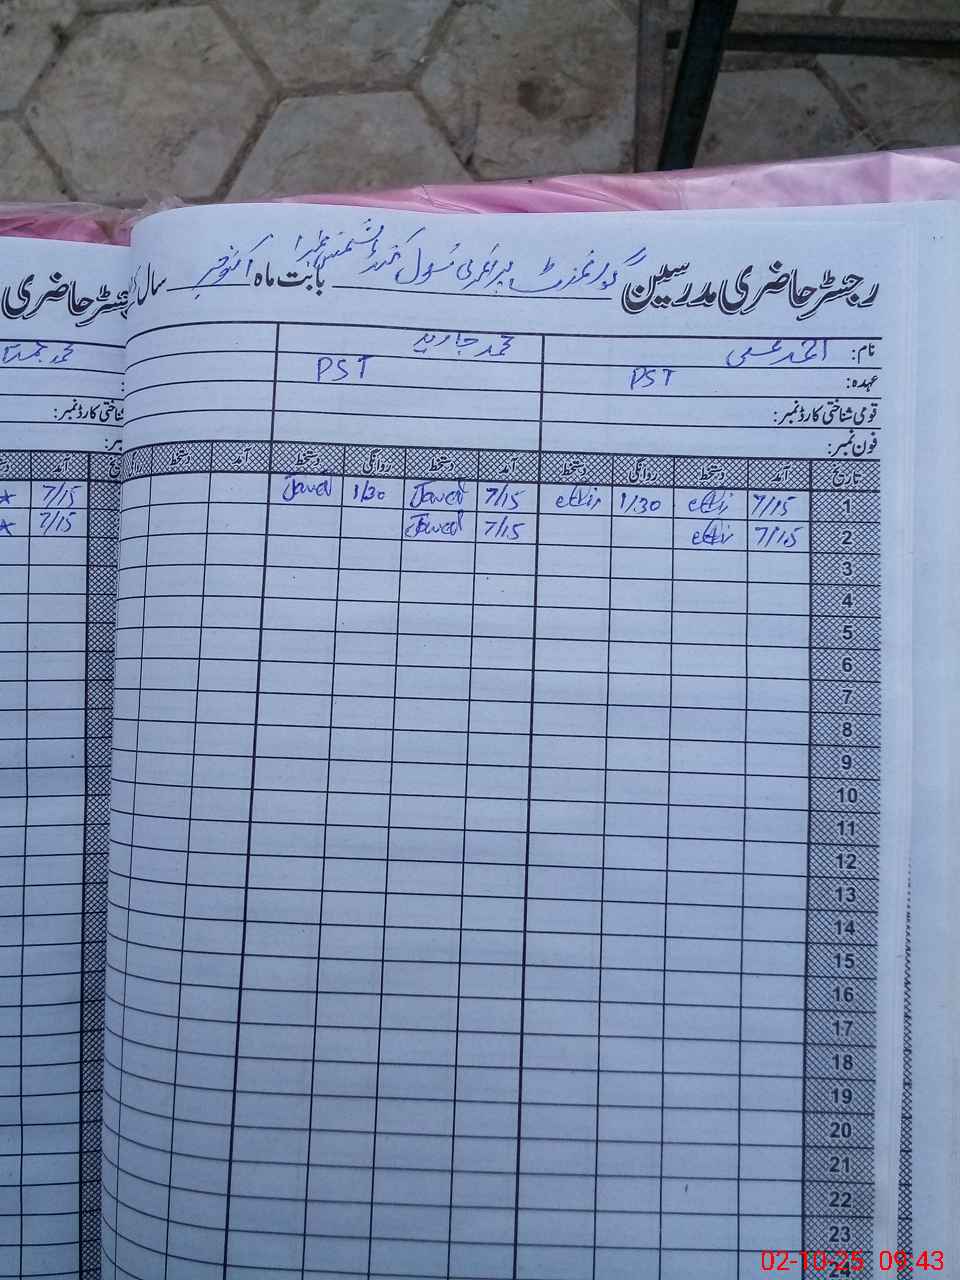 رجسٹر حاضری مدرسین گورنمنٹ پرائمری سکول بابت ماہ اکتوبر سال
نام: احمد محمد جاوید
عہدہ: PST PST
قومی شناختی کارڈ نمبر:
فون نمبر:
تاریخ آمد دستخط روانگی دستخط آمد دستخط روانگی دستخط آمد دستخط
1 7/15 1/30 7/15 Javed 1/30 Javed
2 7/15 7/15 Javed
3
4
5
6
7
8
9
10
11
12
13
14
15
16
17
18
19
20
21
22
23
24
حاضری
محمد
شناختی کارڈ نمبر:
آمد
7/15
7/15
02-10-25 09:43